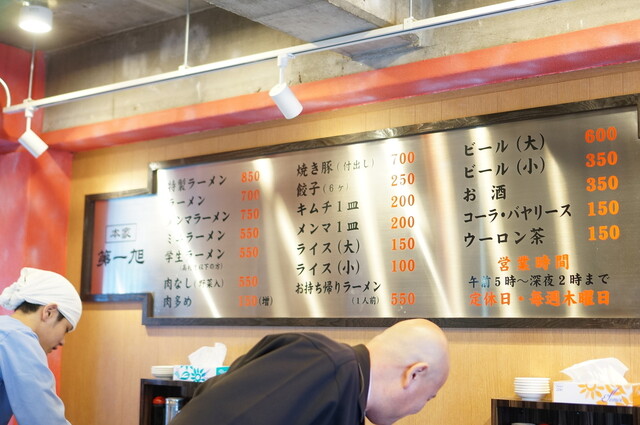 本家
第一旭
特製ラーメン 850
ラーメン 700
メンマラーメン 750
ミニラーメン 550
学生ラーメン 550
肉なし(野菜入) 550
肉多め 150(増)
焼き豚(付出し) 700
餃子(6ヶ) 250
キムチ1皿 200
メンマ1皿 200
ライス(大) 150
ライス(小) 100
お持ち帰りラーメン
(1人前) 550
ビール(大) 600
ビール(小) 350
お酒 350
コーラ・バヤリース 150
ウーロン茶 150
営業時間
午前5時〜深夜2時まで
定休日・毎週木曜日